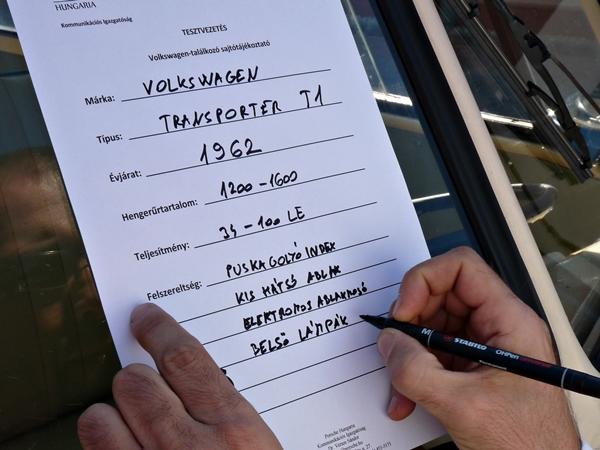 HUNGARIA
Kommunikációs Igazgatóság
TESZTVEZETÉS
Volkswagen-találkozó sajtótájékoztató
Márka: VOLKSWAGEN
Típus: TRANSPORTER T1
Évjárat: 1962
Hengerűrtartalom: 1200-1600
Teljesítmény: 34-100 LE
Felszereltség: PUSKAGOLYÓ INDEX
KIS HÁTSÓ ABLAK
ELEKTROMOS ABLAKMOSÓ
BELSŐ LÁMPÁK
STABILO OHPen
Porsche Hungaria
Kommunikációs Igazgatóság